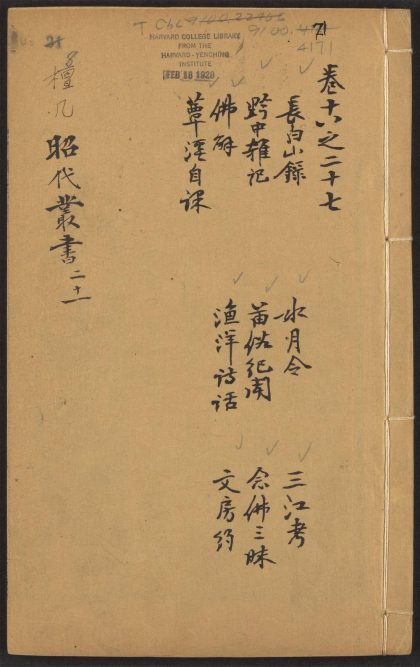 T Chi 9100.22466
9100.
4171
HARVARD COLLEGE LIBRARY
FROM THE
HARVARD-YENCHING
INSTITUTE
FEB 18 1928
卷十六之二十七
長白山錄
水月令
三江考
跨中雜記
苗俗紀聞
念佛三昧
佛解
漁洋诗话
文房約
蕈溪自课
檀几
昭代叢書 二十一